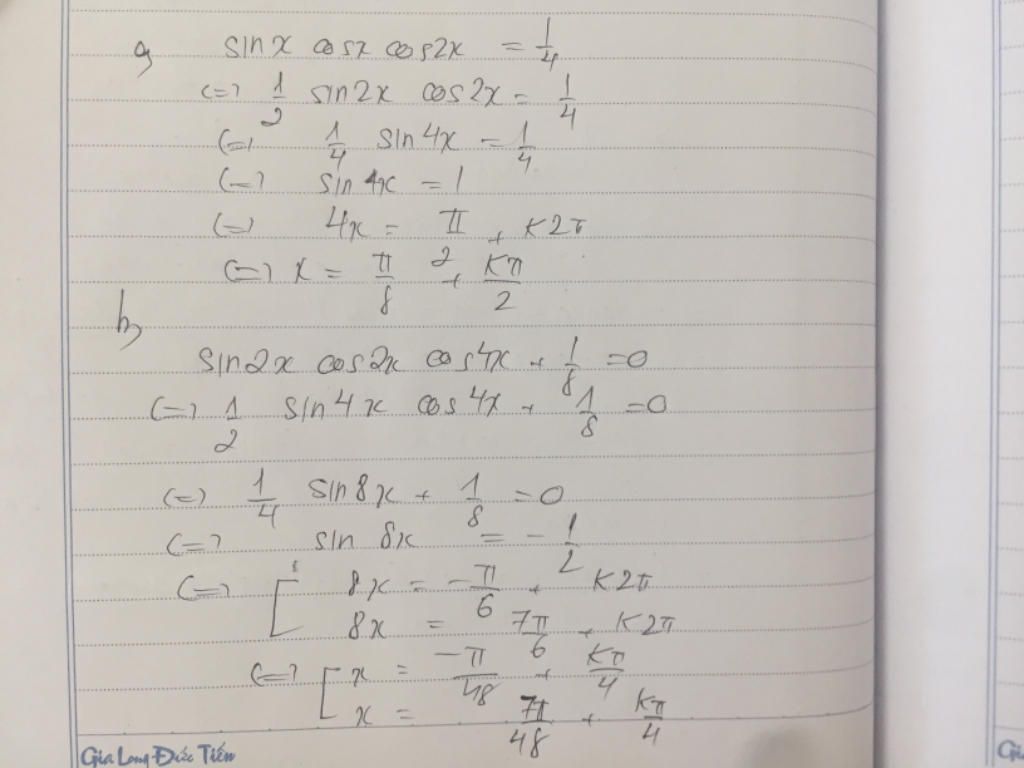 a) sinx cosx cos2x = 1/4
<=> 1/2 sin2x cos2x = 1/4
<=> 1/4 sin4x = 1/4
<=> sin4x = 1
<=> 4x = π/2 + k2π
<=> x = π/8 + kπ/2
b)
sin2x cos2x cos4x + 1/8 = 0
<=> 1/2 sin4x cos4x + 1/8 = 0
<=> 1/4 sin8x + 1/8 = 0
<=> sin 8x = -1/2
<=> [ 8x = -π/6 + k2π
8x = 7π/6 + k2π
<=> [ x = -π/48 + kπ/4
x = 7π/48 + kπ/4
Gia Long Đức Tiến